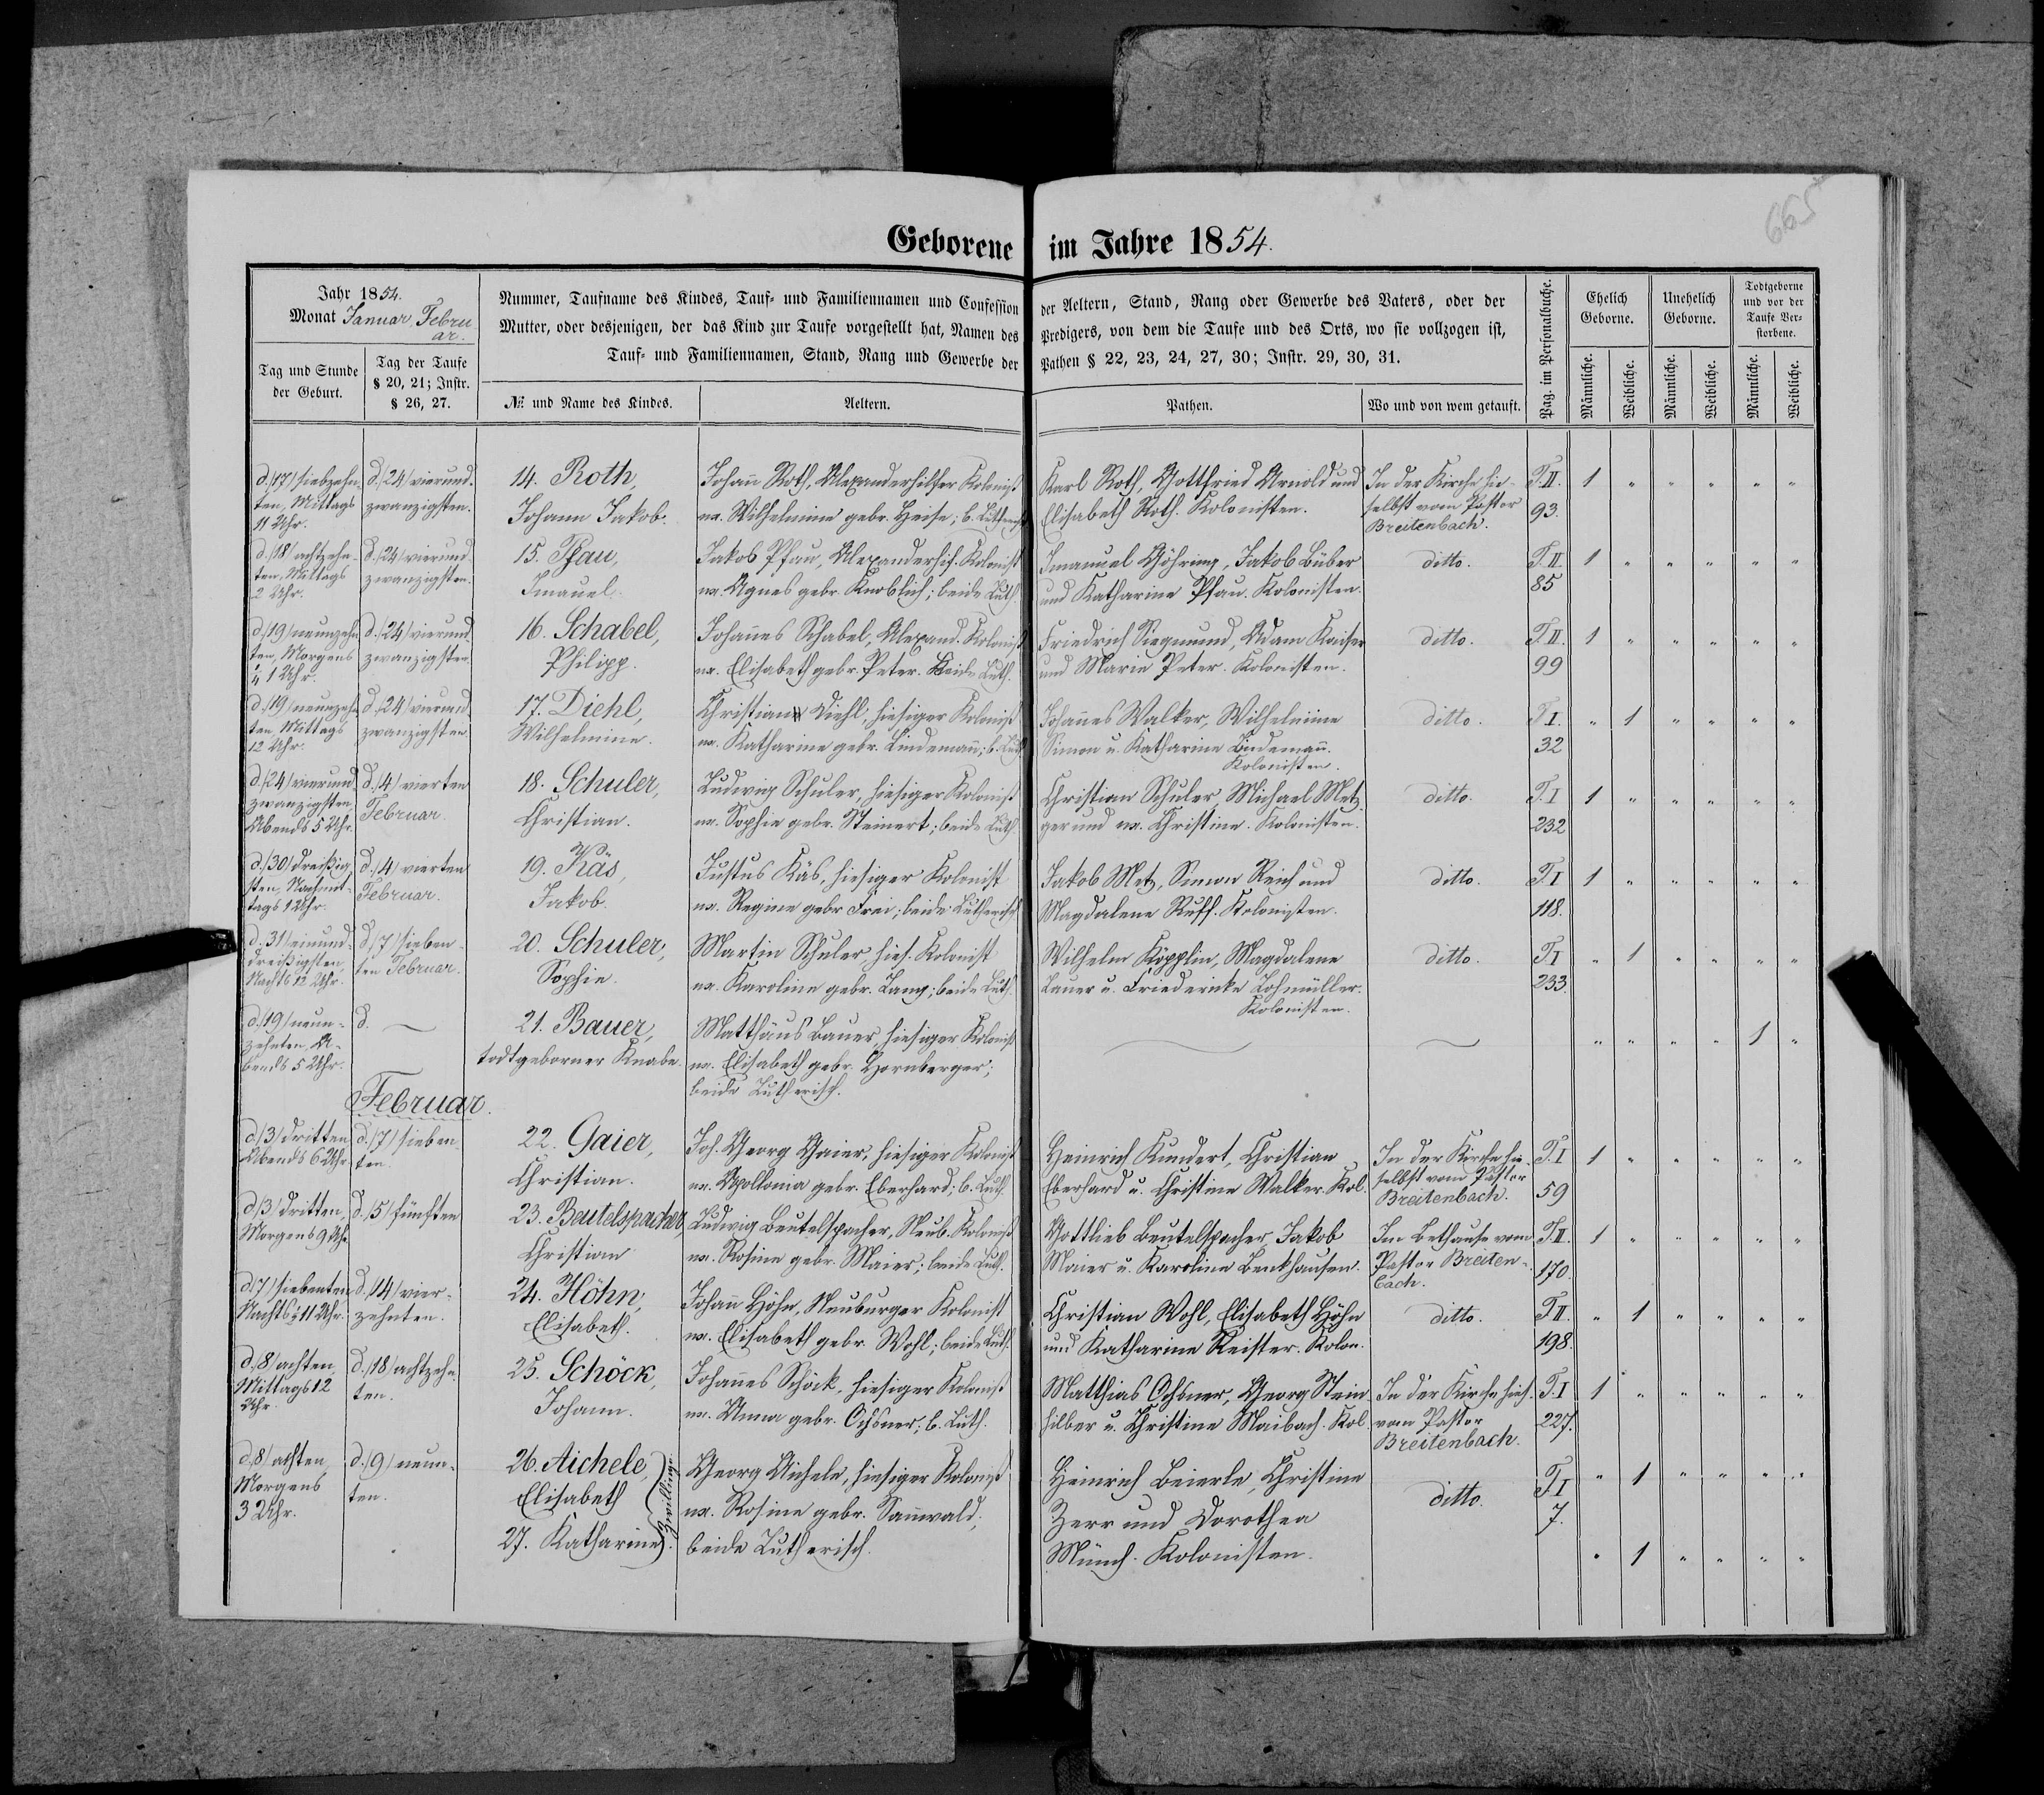 665
Geborene im Jahre 1854.
Jahr 1854.
Monat Januar Febru
ar.
Tag und Stunde
der Geburt.
Tag der Taufe
§ 20, 21; Instr.
§ 26, 27.
Nummer, Taufname des Kindes, Tauf- und Familiennamen und Confession
Mutter, oder desjenigen, der das Kind zur Taufe vorgestellt hat, Namen des
Tauf- und Familiennamen, Stand, Rang und Gewerbe der
№ und Name des Kindes.
Aeltern.
der Aeltern, Stand, Rang oder Gewerbe des Vaters, oder der
Predigers, von dem die Taufe und des Orts, wo sie vollzogen ist,
Pathen § 22, 23, 24, 27, 30; Instr. 29, 30, 31.
Pathen.
Wo und von wem getauft.
Pag. im Personalbuche.
Ehelich
Geborne.
Unehelich
Geborne.
Todtgeborne
und vor der
Taufe Ver-
storbene.
Männliche.
Weibliche.
Männliche.
Weibliche.
Männliche.
Weibliche.
d. (17) siebzehn-
ten, Mittags
11 Uhr.
d. (24) vierund-
zwanzigsten.
14. Roth,
Johann Jakob.
Johann Roth, Alexanderhilfer Kolonist
ux. Wilhelmine gebr. Heise; b. Lutherisch
Karl Roth, Gottfried Arnold und
Elisabeth Roth. Kolonisten.
In der Kirche hie-
selbst vom Pastor
Breitenbach.
T. II.
93.
1 " " " " "
d. (18) achtzehn-
ten, Mittags
2 Uhr.
d. (24) vierund
zwanzigsten.
15. Pfau,
Imanuel.
Jakob Pfau, Alexanderhif. Kolonist
ux. Agnes gebr. Knoblich; beide Luth.
Imanuel Göhring, Jakob Büber
und Katharine Pfau. Kolonisten.
ditto.
T. II.
85
1 " " " " "
d. (19) neunzehn
ten, Morgens
1 Uhr.
d. (24) vierund
zwanzigsten.
16. Schabel,
Philipp.
Johannes Schabel, Alexand. Kolonist
ux. Elisabeth gebr. Peter. Beide Luth.
Friedrich Siegmund, Adam Kaiser
und Marie Peter. Kolonisten.
ditto.
T. II.
99
1 " " " " "
d. (19) neunzehn
ten, Mittags
12 Uhr.
d. (24) vierund
zwanzigsten.
17. Diehl,
Wilhelmine.
Christian Diehl, hiesiger Kolonist
ux. Katharine gebr. Lindemann; b. Luth
Johannes Walker, Wilhelmine
Simon u. Katharine Lindemann.
Kolonisten.
ditto.
T. I.
32
" 1 " " " "
d. (24) vierund
zwanzigsten,
Abends 5 Uhr.
d. (4) vierten
Februar.
18. Schuler,
Christian.
Ludwig Schuler, hiesiger Kolonist
ux. Sophie gebr. Steinert; beide Luth.
Christian Schuler, Michael Metz-
ger und ux. Christine. Kolonisten.
ditto.
T. I
232
1 " " " " "
d. (30) dreißig
sten, Nachmit-
tags 1 Uhr.
d. (4) vierten
Februar.
19. Käs,
Jakob.
Justus Käs, hiesiger Kolonist
ux. Regine gebr. Frei; beide Lutherisch
Jakob Metz, Simon Reich und
Magdalene Ruff. Kolonisten.
ditto.
T. I
118.
1 " " " " "
d. 31) einund-
dreißigsten,
Nachts 12 Uhr.
d. (7) sieben-
ten Februar.
20. Schuler,
Sophie.
Martin Schuler, hies. Kolonist
ux. Karoline gebr. Lang; beide Luth.
Wilhelm Köpplin, Magdalene
Lauer u. Friedericke Lohmüller.
Kolonisten.
ditto.
T. I
233.
" 1 " " " "
d. (19) neun-
zehnten, A-
bends 5 Uhr.
d. —
21. Bauer,
todtgeborner Knabe.
Matthäus Bauer, hiesiger Kolonist
ux. Elisabeth gebr. Hornberger;
beide Lutherisch.
" " " " 1 "
Februar.
d. (3) dritten
Abends 6 Uhr
d. (7) sieben-
ten.
22. Gaier,
Christian.
Joh. Georg Gaier, hiesiger Kolonist
ux. Apollonia gebr. Eberhard; b. Luth.
Heinrich Kundert, Christian
Eberhard u. Christine Walker. Kol.
In der Kirche hie-
selbst vom Pastor
Breitenbach.
T. I
59
1 " " " " "
d. (3) dritten,
Morgens 9 Uhr
d. (5) fünften
23. Beutelspacher,
Christian
Ludwig Beutelspacher, Neub. Kolonist
ux. Rosine gebr. Maier; beide Luth.
Gottlieb Beutelspacher Jakob
Maier u. Karoline Benkhausen.
Im Bethause vom
Pastor Breiten-
bach.
T. II.
170.
1 " " " " "
d. (7) siebenten
Nachts 11 Uhr.
d. (14) vier-
zehnten.
24. Höhn,
Elisabeth.
Johann Höhn, Neuburger Kolonist
ux. Elisabeth gebr. Wohl; beide Luth.
Christian Wohl, Elisabeth Höhn
und Katharine Reister. Kolon.
ditto.
T. II.
198.
" 1 " " " "
d. (8) achten
Mittags 12
Uhr.
d. (18) achtzehn
ten.
25. Schöck,
Johann.
Johannes Schöck, hiesiger Kolonist
ux. Anna gebr. Ochsner; b. Luth.
Matthias Ochsner, Georg Stein
hilber u. Christine Maibach. Kol.
In der Kirche hies.
vom Pastor
Breitenbach.
T. I
227.
1 " " " " "
d. (8) achten,
Morgens
3 Uhr.
d. (9) neun-
ten.
26. Aichele,
Elisabeth
27. Katharine
Zwillinge
Georg Aichele, hiesiger Kolonist
ux. Rosine gebr. Sannwald;
beide Lutherisch.
Heinrich Beierle, Christine
Zerr und Dorothea
Münch. Kolonisten.
ditto.
T. I
7.
" 1 " " " "
" 1 " " " "